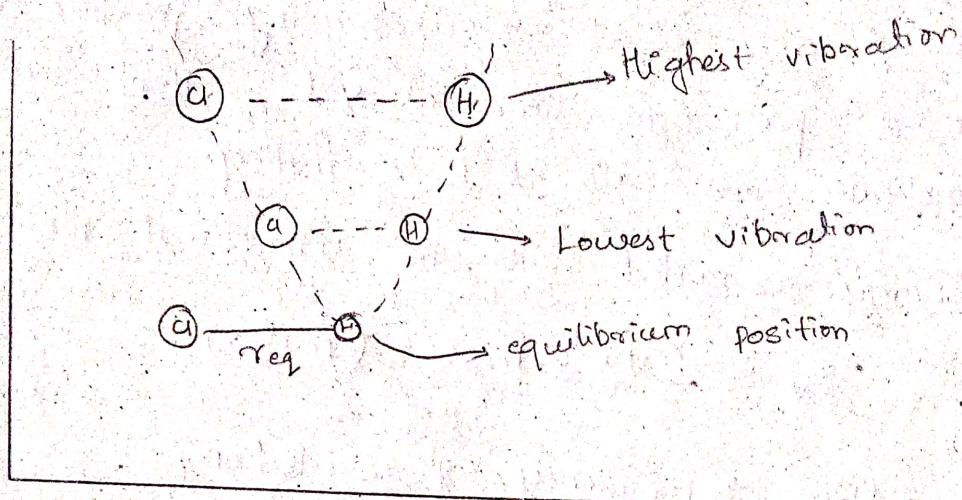 Cl H Highest vibration
Cl H Lowest vibration
Cl H equilibrium position
req